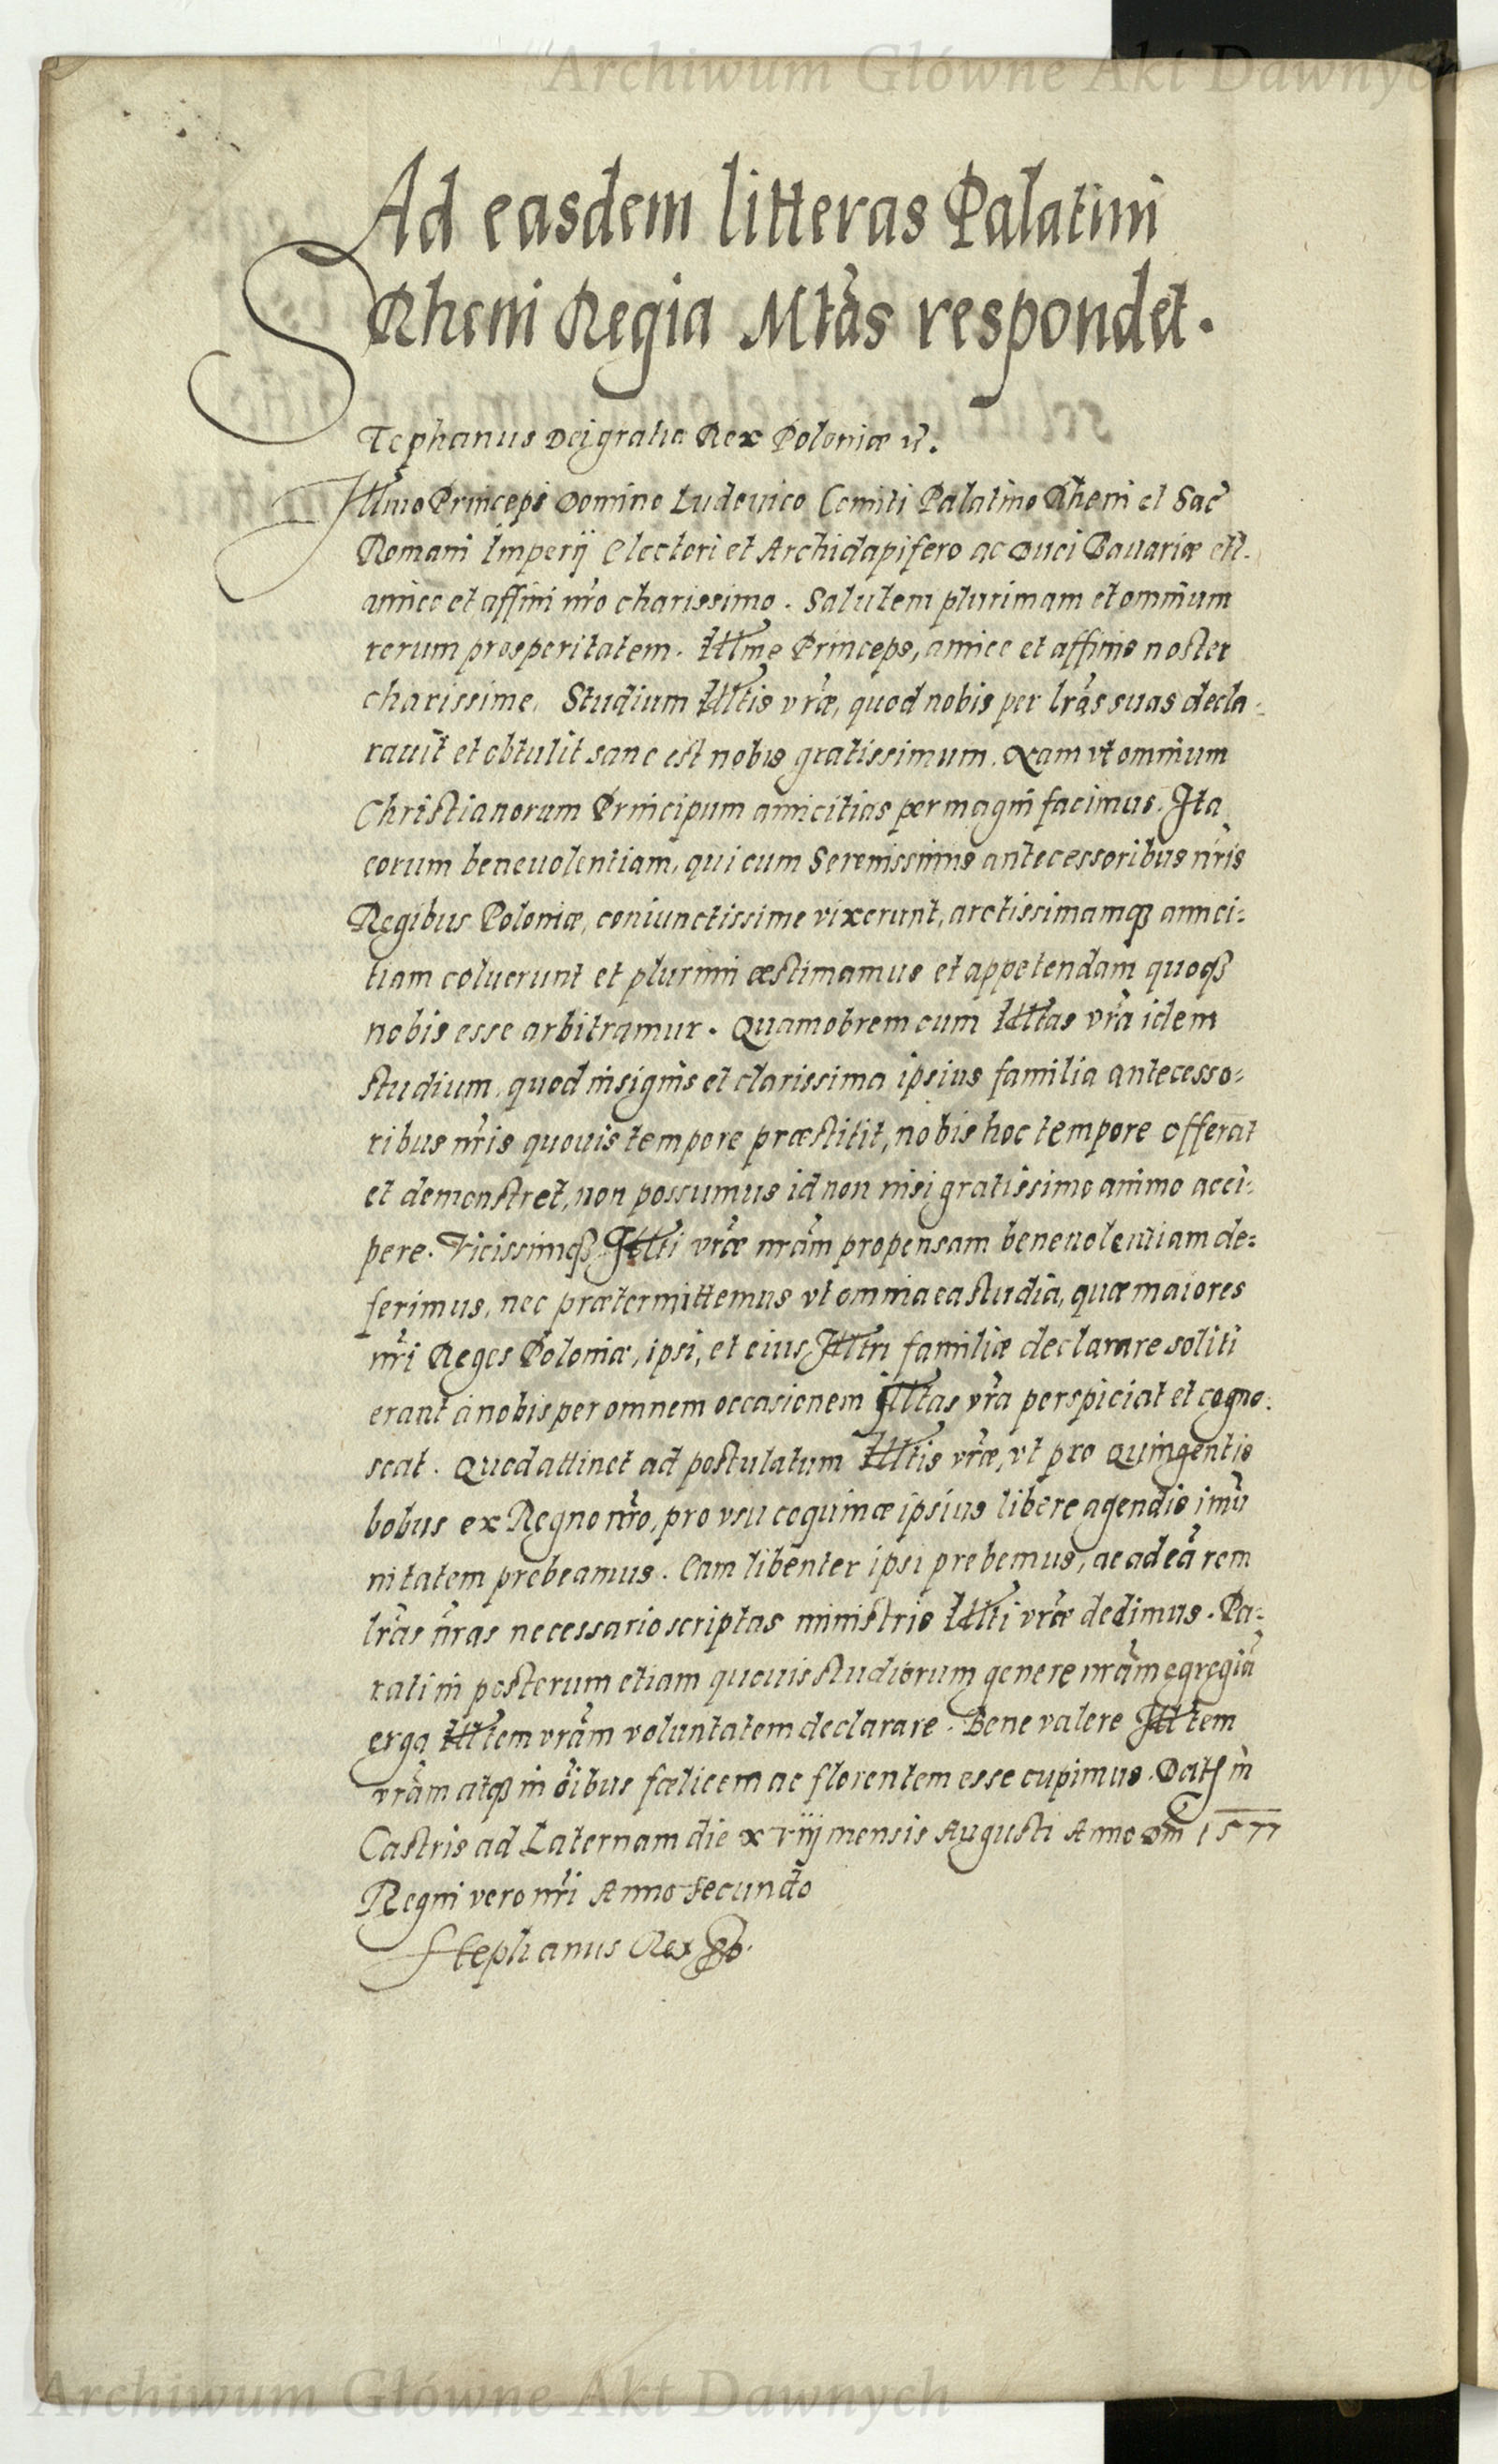 Archiwum Główne Akt Dawnych
Ad easdem litteras Palatini
Rheni Regia Mtas respondet.
STephanus Dei gratia Rex Poloniæ
Illmo Principi Domino Ludovico Comiti Palatino Rheni et Sac
Romani Imperij Electori et Archidapifero ac Duci Bauariæ etc.
amico et affini nro charissimo. Salutem plurimam et omnium
rerum prosperitatem. Illme Princeps, amice et affinis noster
charissime. Studium Illtis vræ, quod nobis per lras suas decla-
rauit et obtulit sane est nobis gratissimum. Nam vt omnium
Christianorum Principum amicitias permagni facimus. Ita
eorum beneuolentiam, qui cum Serenissimis antecessoribus nris
Regibus Poloniæ, coniunctissime vixerunt, arctissimamq3 amici=
tiam coluerunt et plurimi æstimamus et appetendam quoq3
nobis esse arbitramur. Quamobrem cum Illtas vra idem
studium, quod insignis et clarissima ipsius familia antecesso=
ribus nris quouis tempore præstitit, nobis hoc tempore offerat
et demonstret, non possumus id non nisi gratissimo animo acci=
pere. Vicissimq3 Illti vræ nram propensam beneuolentiam de=
ferimus, nec prætermittemus vt omnia ea studia, quæ maiores
nri Reges Poloniæ, ipsi, et eius Illtri familiæ declarare soliti
erant a nobis per omnem occasionem Illtas vra perspiciat et cogno=
scat. Quod attinet ad postulatum Illtis vræ, vt pro quingentis
bobus ex Regno nro, pro vsu coquinæ ipsius libere agendis imu
nitatem prebeamus. Eam libenter ipsi prebemus, ac ad ea rem
lras nras necessario scriptas ministris Illti vræ dedimus. Pa=
rati in posterum etiam quouis studiorum genere nram egregia
erga Illtem vram voluntatem declarare. Bene valere Illtem
vram atq3 in oibus fœlicem ac florentem esse cupimus. Dat in
Castris ad Laternam die xviij mensis Augusti Anno Dni 1577
Regni vero nri Anno secundo
Stephanus Rex
Archiwum Główne Akt Dawnych